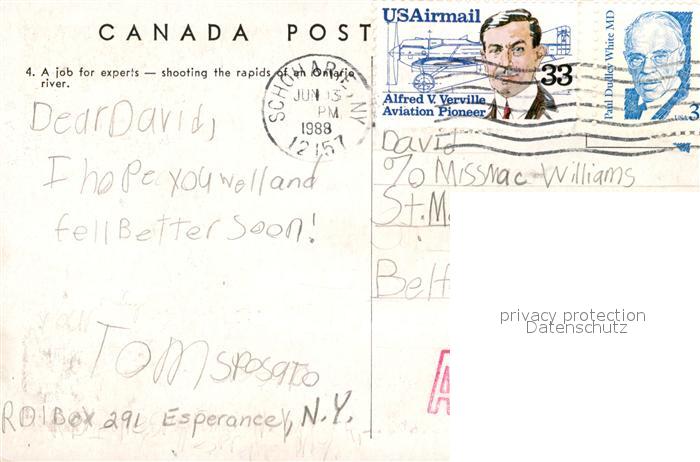 CANADA POST
4. A job for experts — shooting the rapids of an Ontario
river.
SCHOHARIE NY
JUN 13
PM
1988
12157
USAirmail
33
Alfred V. Verville
Aviation Pioneer
Paul Dudley White MD
USA 3
Dear David,
I hope you well and
fell Better Soon!
Tom Sposato
RD1 Box 291 Esperance, N.Y.
David
c/o Miss Mac Williams
St. M
Belf
A
privacy protection
Datenschutz